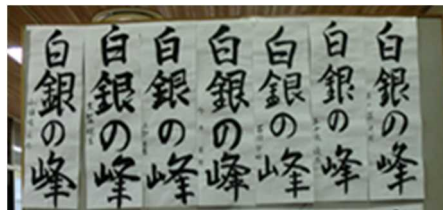 白銀の峰
白銀の峰
白銀の峰
白銀の峰
白銀の峰
白銀の峰
白銀の峰